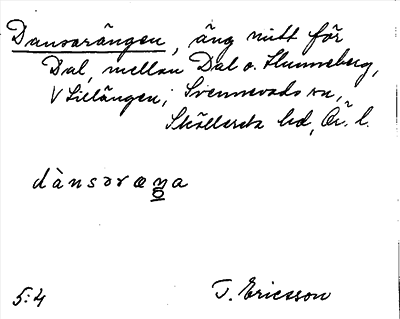 Dansarängen, äng mitt för
Dal, mellan Dal o. Hunneberg,
V Lillängen; Svennevads sn,
Sköllersta hd, Ör. l.
dànsaræŋa
5:4
T. Ericsson